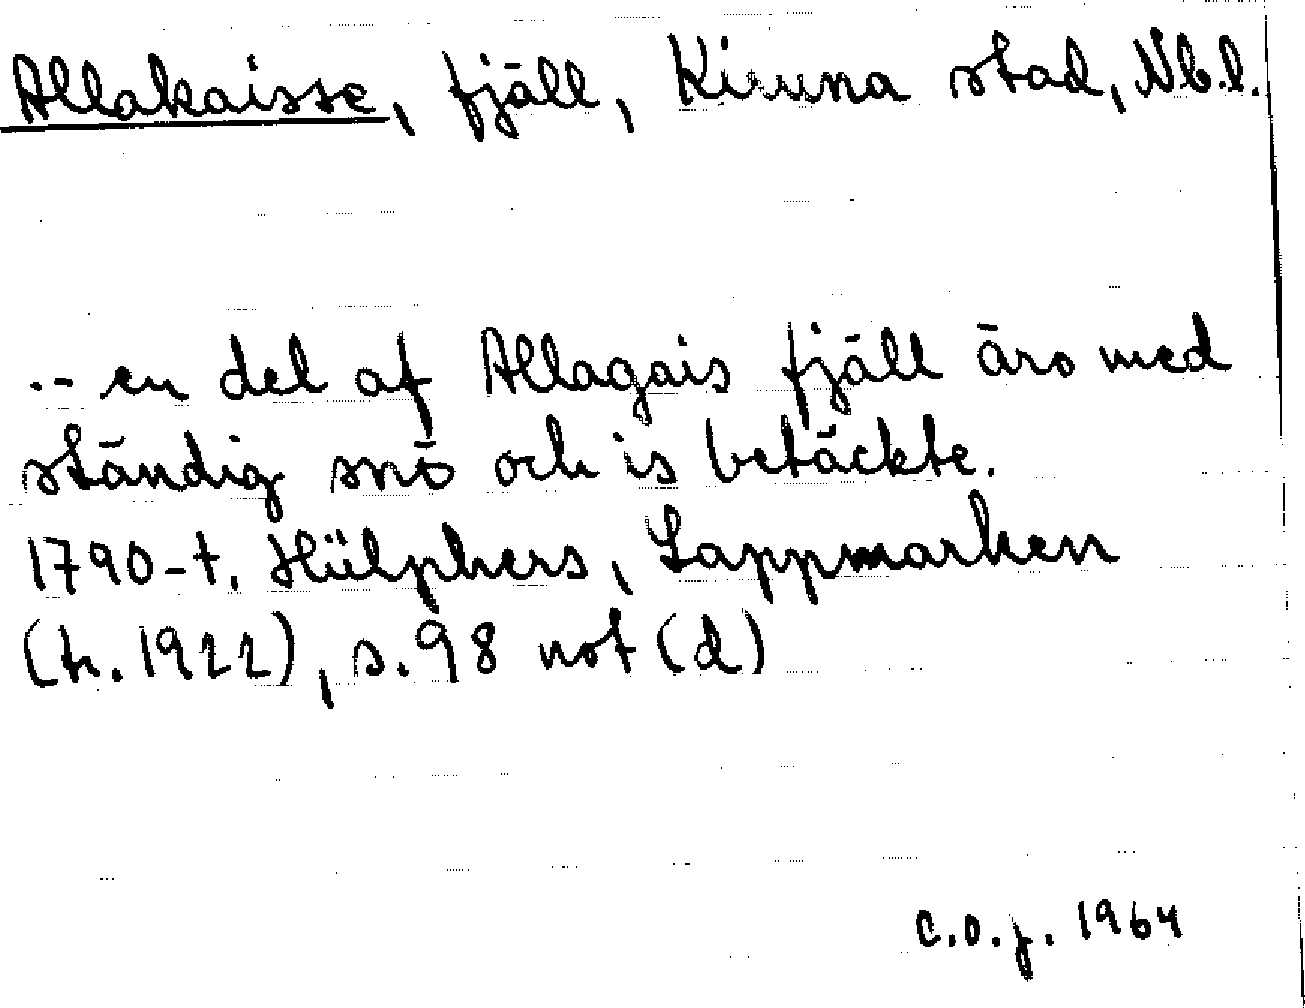 Allakaisse, fjäll, Kiruna stad, Nb.l.
.-- en del af Allagais fjäll äro med
ständig snö och is betäckte.
1790-t. Hülphers, Lappmarken
(tr. 1922), s. 98 not (d)
C.O.J. 1964